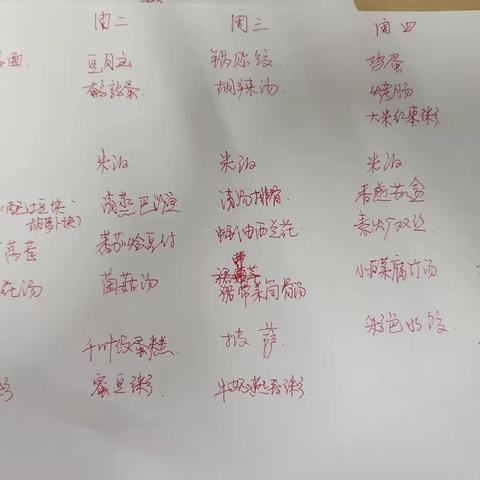 周二 周三 周四
面. 豆月亚 锅贴饺 鸡蛋
鹌鹑蛋 胡辣汤. 烤肠
大米红枣粥
米饭 米饭 米饭
(配土豆块、 清蒸巴沙鱼 清汤排骨 香煎茄盒
胡萝卜块)
莴苣 番茄烩豆付 蚝油西兰花. 素炒双边
花汤 菌菇汤 裙带菜筒骨汤 小白菜腐竹汤
千叶纹蛋糕. 披萨. 彩色水饺
粥 蜜豆粥 牛奶燕麦粥